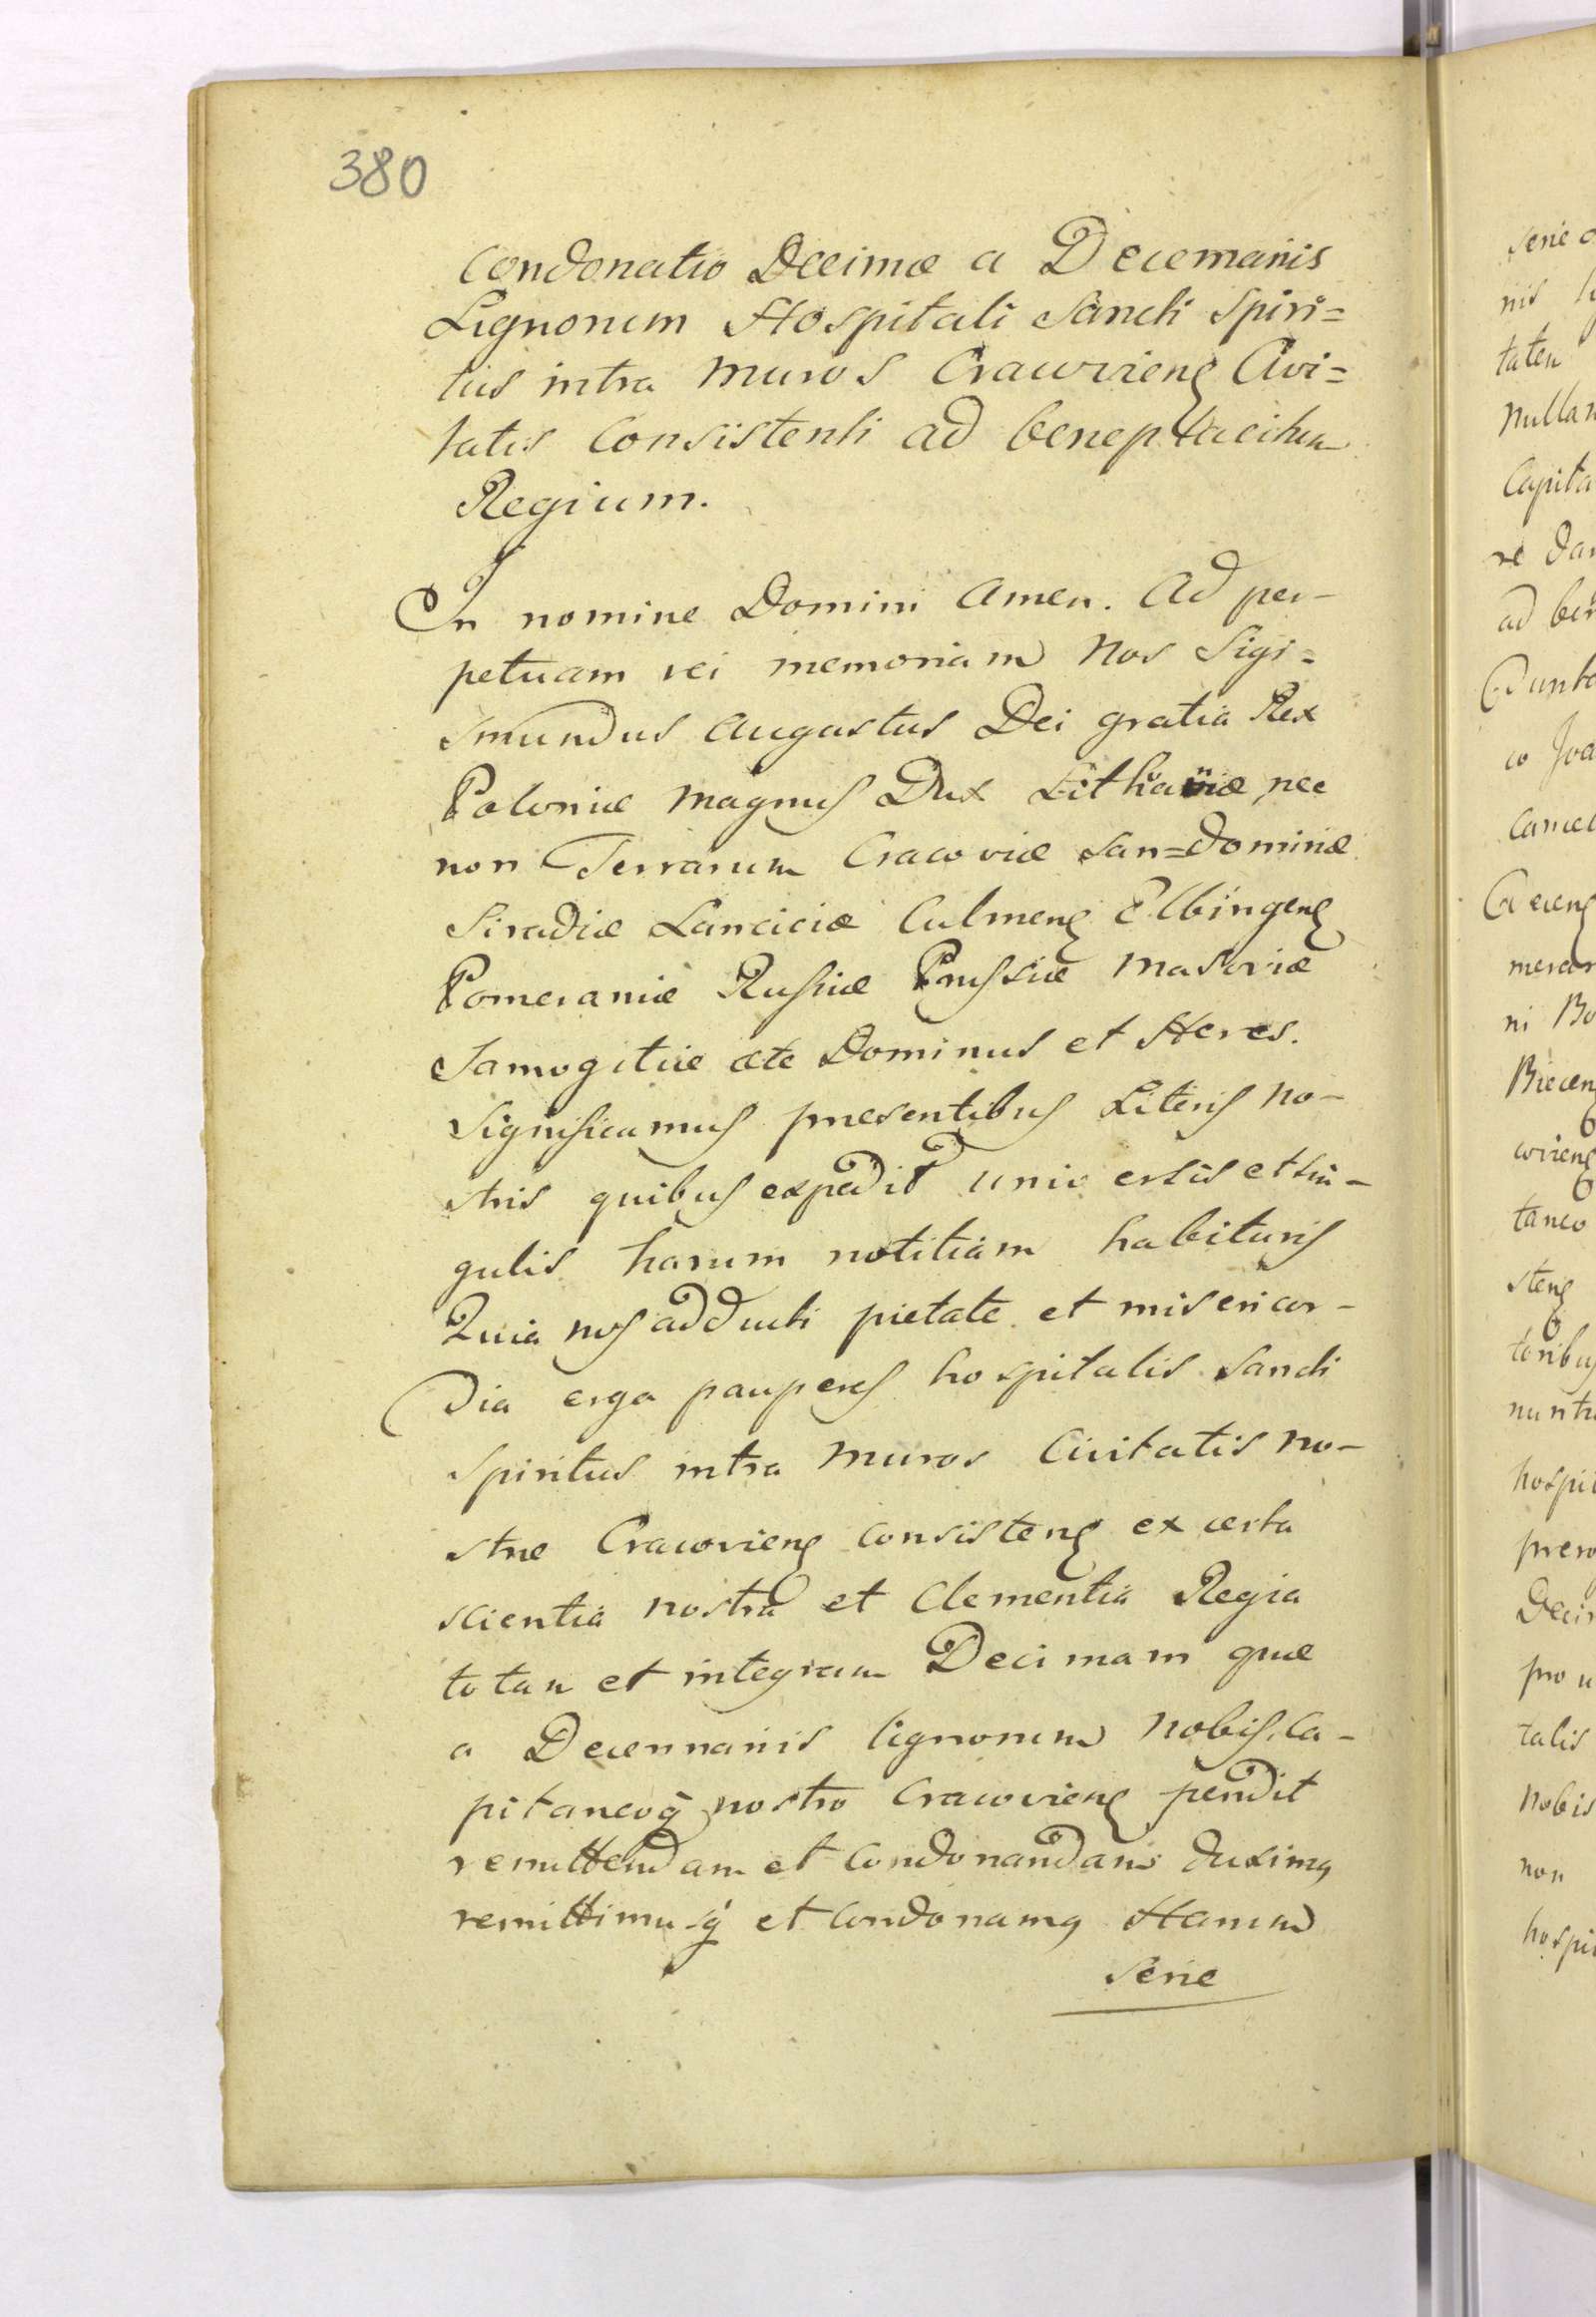 380
Condonatio Decimæ a Decemariis
Lignorum Hospitali Sancti Spiri=
tus intra Muros Cracoviens Civi=
tatis Consistenti ad beneplacitum
Regium.
In nomine Domini Amen. Ad per-
petuam rei memoriam Nos Sigi=
smundus Augustus Dei gratia Rex
Poloniæ Magnus Dux Lithaniæ, nec
non Terrarum Cracoviæ San=domiriæ
Siradiæ Lanciciæ Culmens Elbingens
Pomeraniæ Russiæ Prussiæ Masoviæ
Samogitiæ etc Dominus et Heres.
Significamus præsentibus Literis no-
stris quibus expedit universis et sin-
gulis harum notitiam habituris
Quia nos adducti pietate et misericor-
dia erga pauperes hospitalis Sancti
Spiritus intra Muros Civitatis no-
stræ Cracoviens consistens ex certa
scientia nostra et Clementia Regia
totam et integram Decimam quæ
a Decennariis lignorum Nobis, Ca-
pitaneoq nostro Cracoviens pendit
remittendam et Condonandam duximus
remittimusq et Condonamus Harum
Serie
serie
nis
taten
nullam
Capita
re
ad ben
co
cancel
mercat
ni
taneo
stens
toribus
hospi
pro
talis
Nobis
non
hospi